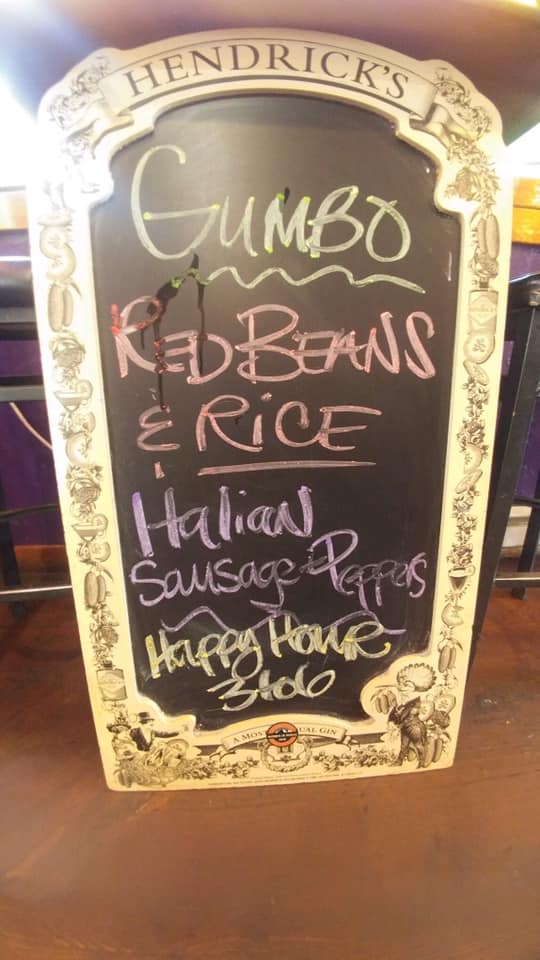 HENDRICK'S
GUMBO
RED BEANS
& RICE
Italian
Sausage & Peppers
Happy Hour
3 to 6
A MOST UNUSUAL GIN